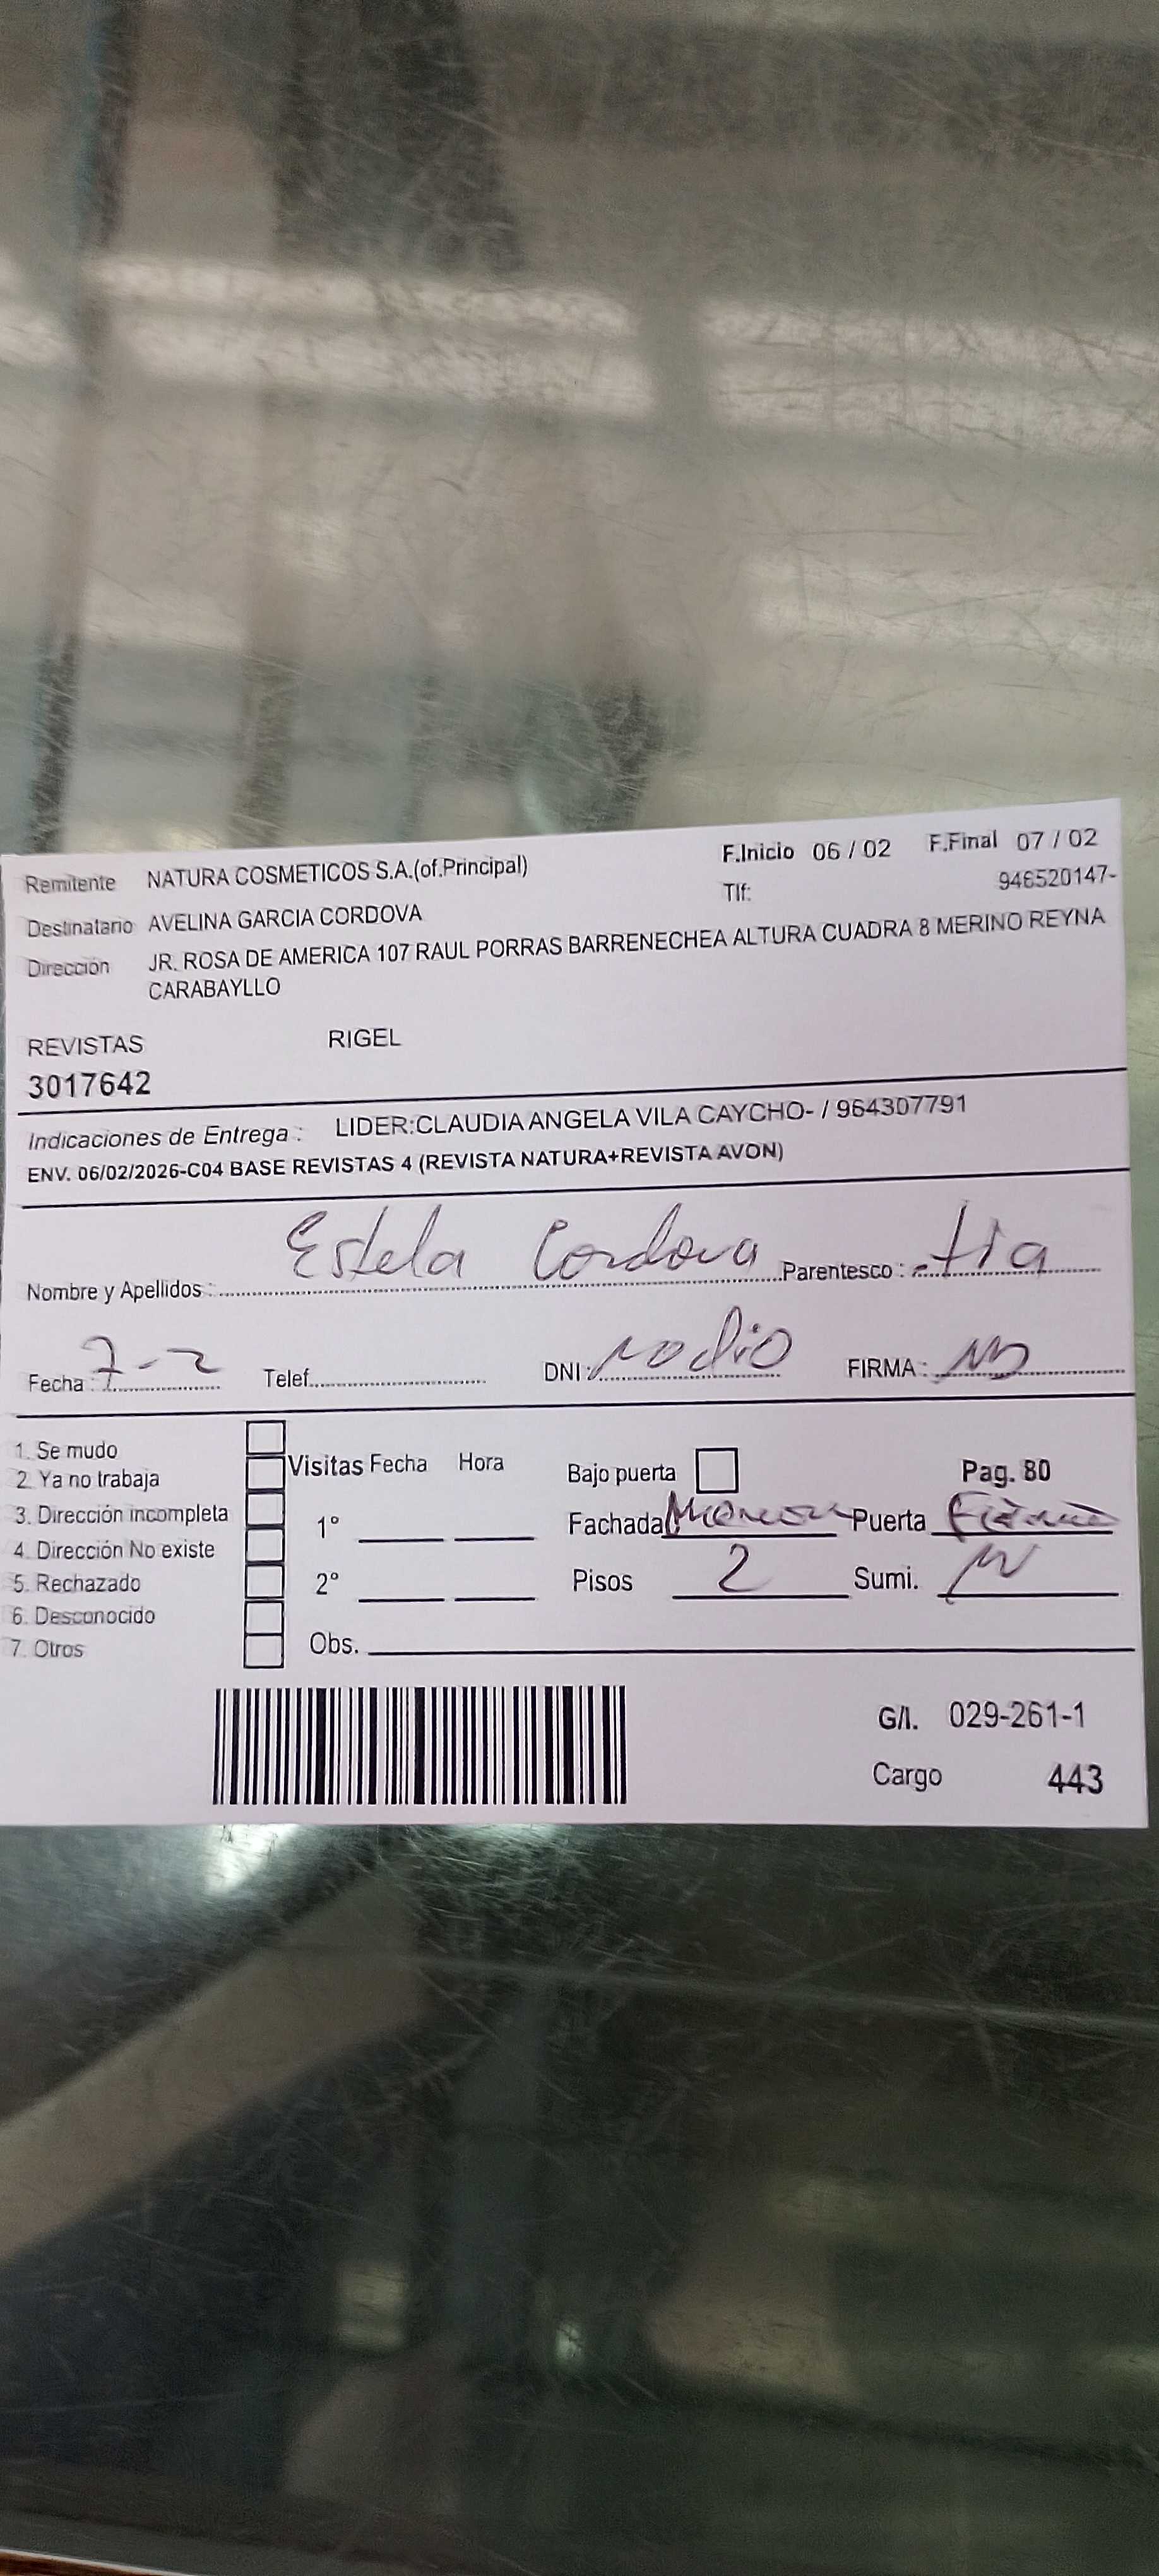 Remitente NATURA COSMETICOS S.A.(of.Principal) F.Inicio 06 / 02 F.Final 07 / 02
Tlf: 946520147-
Destinatario AVELINA GARCIA CORDOVA
Dirección JR. ROSA DE AMERICA 107 RAUL PORRAS BARRENECHEA ALTURA CUADRA 8 MERINO REYNA
CARABAYLLO
REVISTAS RIGEL
3017642
Indicaciones de Entrega : LIDER:CLAUDIA ANGELA VILA CAYCHO- / 964307791
ENV. 06/02/2026-C04 BASE REVISTAS 4 (REVISTA NATURA+REVISTA AVON)
Nombre y Apellidos : Estela Cordova Parentesco : tia
Fecha : 7-2 Telef. DNI: no dio FIRMA:
1. Se mudo
2. Ya no trabaja Visitas Fecha Hora Bajo puerta Pag. 80
3. Dirección incompleta 1° Fachada Puerta
4. Dirección No existe
5. Rechazado 2° Pisos 2 Sumi.
6. Desconocido
7. Otros Obs.
G/I. 029-261-1
Cargo 443